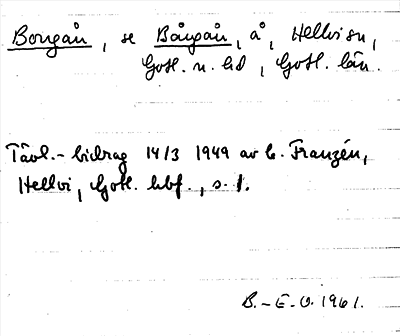 Bongån, se Bångån, å, Hellvi sn,
Gotl. n. hd, Gotl. län.
Tävl.-bidrag 14/3 1949 av C. Franzén,
Hellvi, Gotl. hbf., s. 1.
B.-E.O. 1961.